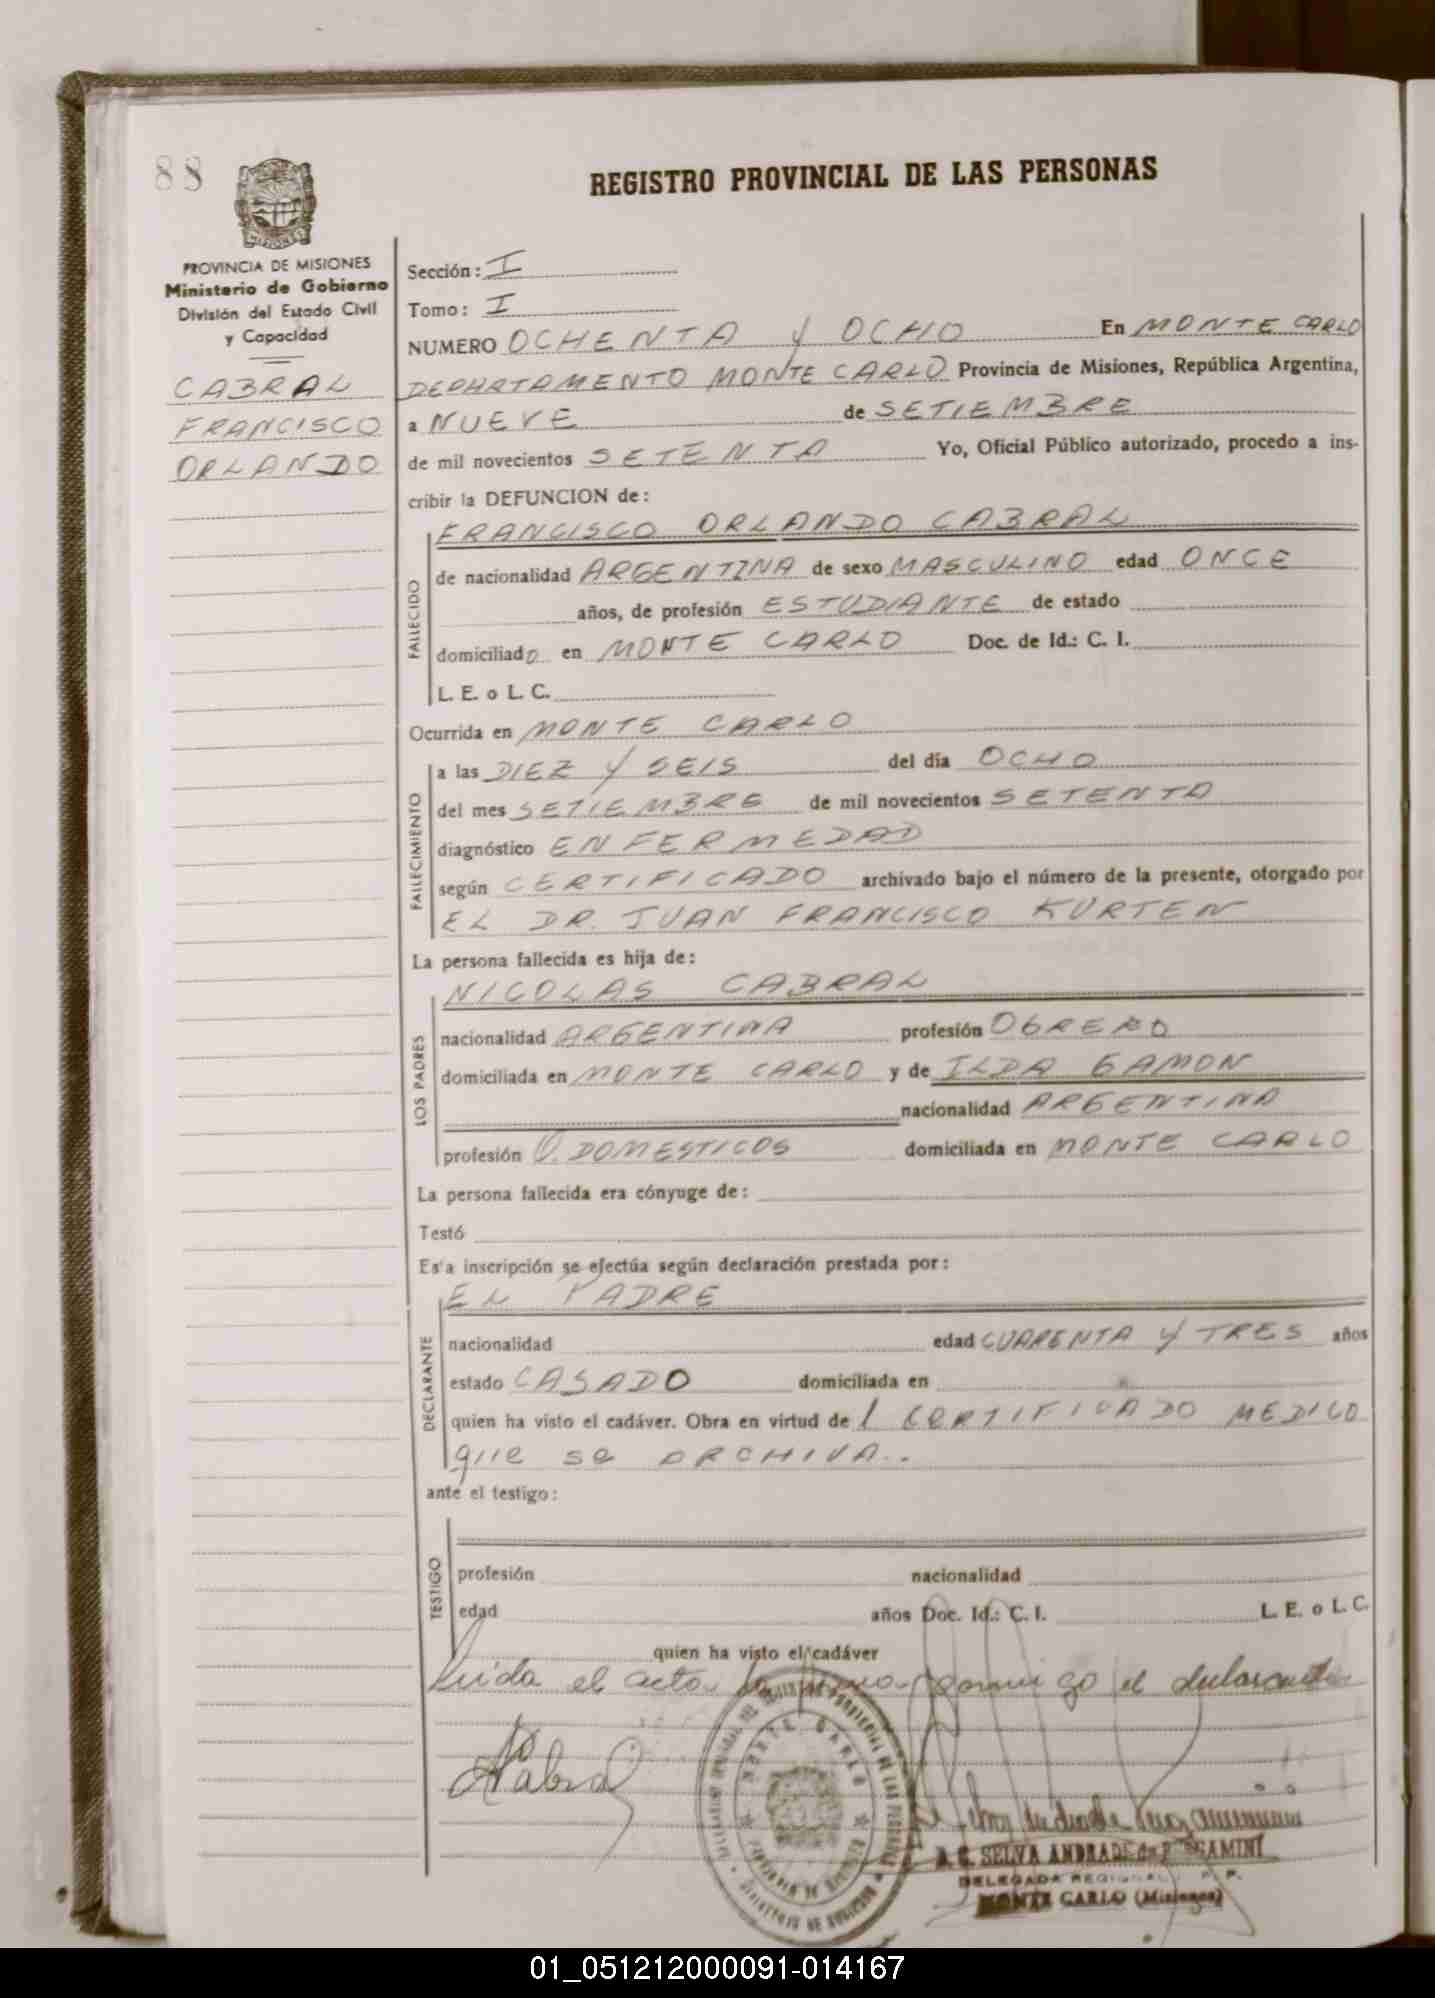 88
REGISTRO PROVINCIAL DE LAS PERSONAS
MISIONES
PROVINCIA DE MISIONES
Ministerio de Gobierno
División del Estado Civil
y Capacidad
CABRAL
FRANCISCO
ORLANDO
Sección: I
Tomo: I
NUMERO OCHENTA Y OCHO En MONTE CARLO
DEPARTAMENTO MONTE CARLO Provincia de Misiones, República Argentina,
a NUEVE de SETIEMBRE
de mil novecientos SETENTA Yo, Oficial Público autorizado, procedo a ins-
cribir la DEFUNCION de:
FRANCISCO ORLANDO CABRAL
FALLECIDO
de nacionalidad ARGENTINA de sexo MASCULINO edad ONCE
años, de profesión ESTUDIANTE de estado
domiciliado en MONTE CARLO Doc. de Id.: C. I.
L. E. o L. C.
Ocurrida en MONTE CARLO
FALLECIMIENTO
a las DIEZ Y SEIS del día OCHO
del mes SETIEMBRE de mil novecientos SETENTA
diagnóstico ENFERMEDAD
según CERTIFICADO archivado bajo el número de la presente, otorgado por
EL DR. JUAN FRANCISCO KURTEN
La persona fallecida es hija de:
NICOLAS CABRAL
LOS PADRES
nacionalidad ARGENTINA profesión OBRERO
domiciliada en MONTE CARLO y de ILDA GAMON
nacionalidad ARGENTINA
profesión Q. DOMESTICOS domiciliada en MONTE CARLO
La persona fallecida era cónyuge de:
Testó
Es'a inscripción se efectúa según declaración prestada por:
EL PADRE
DECLARANTE
nacionalidad edad CUARENTA Y TRES años
estado CASADO domiciliada en
quien ha visto el cadáver. Obra en virtud de l CERTIFICADO MEDICO
que se ARCHIVA..
ante el testigo:
TESTIGO
profesión nacionalidad
edad años Doc. Id.: C. I. L. E. o L. C.
quien ha visto el cadáver
Leida el acta, la firma conmigo el declarante
NCabral
MONTE CARLO
SELVA ANDRADE de BERGAMINI
DELEGADA REGIONAL R. P. P.
MONTE CARLO (Misiones)
01_051212000091-014167